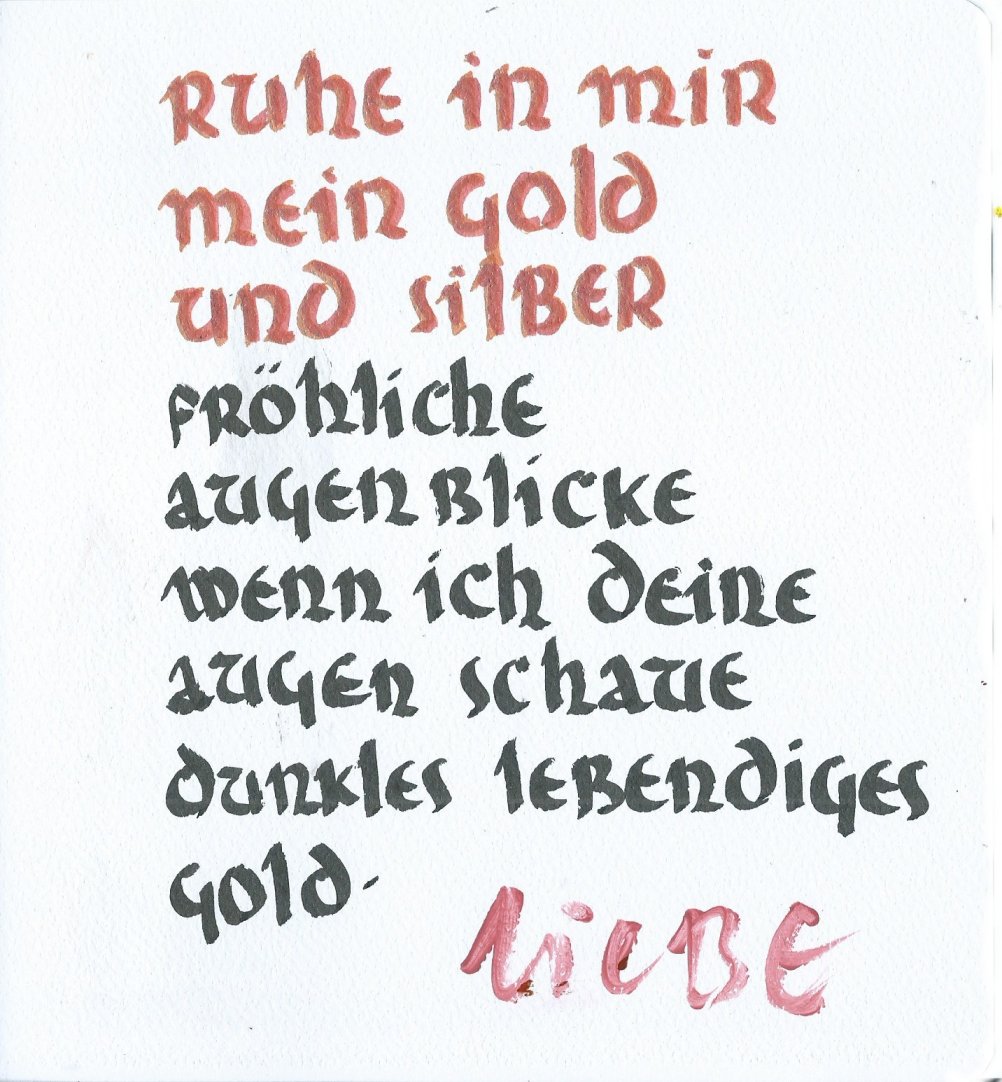 Ruhe in mir
mein gold
und silber
fröhliche
augenblicke
wenn ich deine
augen schaue
dunkles lebendiges
gold.
Liebe